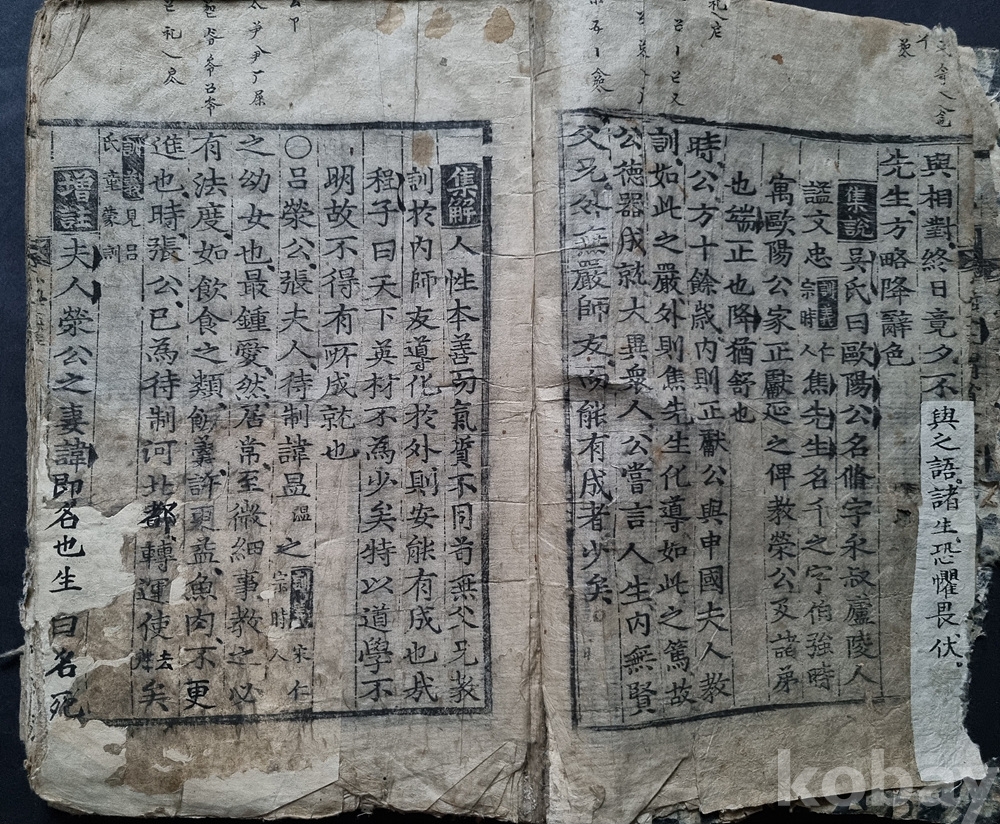 與相對終日竟夕不與之語諸生恐懼畏伏
先生方略降辭色
集說 吳氏曰歐陽公名脩字永叔廬陵人
謚文忠 訓義 宗時仁人 焦先生名千之字伯強時
寓歐陽公家正獻延之俾教榮公及諸弟
也端正也降猶舒也
時公方十餘歲內則正獻公與申國夫人教
訓如此之嚴外則焦先生化導如此之篤故
公德器成就大異衆人公嘗言人生內無賢
父兄外無嚴師友而能有成者少矣
集解 人性本善而氣質不同苟無父兄教
訓於內師友導化於外則安能有成也哉
程子曰天下英材不為少矣特以道學不
明故不得有所成就也
〇呂榮公張夫人待制諱昷溫之 宋仁宗時人
之幼女也最鍾愛然居常至微細事教之必
有法度如飲食之類飯羹許更益魚肉不更
進也時張公已為待制河北都轉運使去聲矣
訓義見呂氏童蒙訓
增註 夫人榮公之妻諱即名也生曰名死
kobay